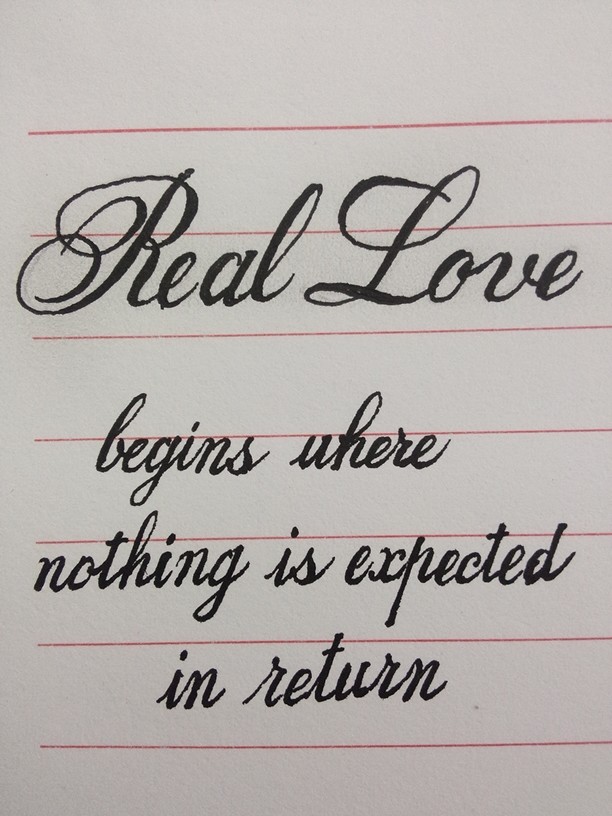 Real Love
begins where
nothing is expected
in return